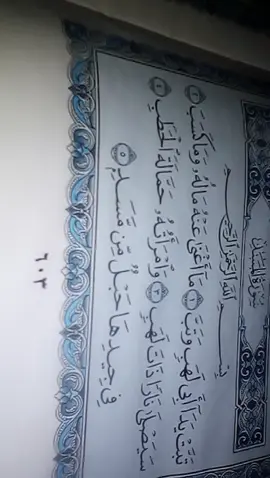 سُورَةُ المَسَدِ
بِسْمِ اللَّهِ الرَّحْمَٰنِ الرَّحِيمِ
تَبَّتْ يَدَآ أَبِى لَهَبٍ وَتَبَّ ١ مَآ أَغْنَىٰ عَنْهُ مَالُهُۥ وَمَا كَسَبَ ٢
سَيَصْلَىٰ نَارًا ذَاتَ لَهَبٍ ٣ وَٱمْرَأَتُهُۥ حَمَّالَةَ ٱلْحَطَبِ ٤
فِى جِيدِهَا حَبْلٌ مِّن مَّسَدٍۭ ٥
٦٠٣